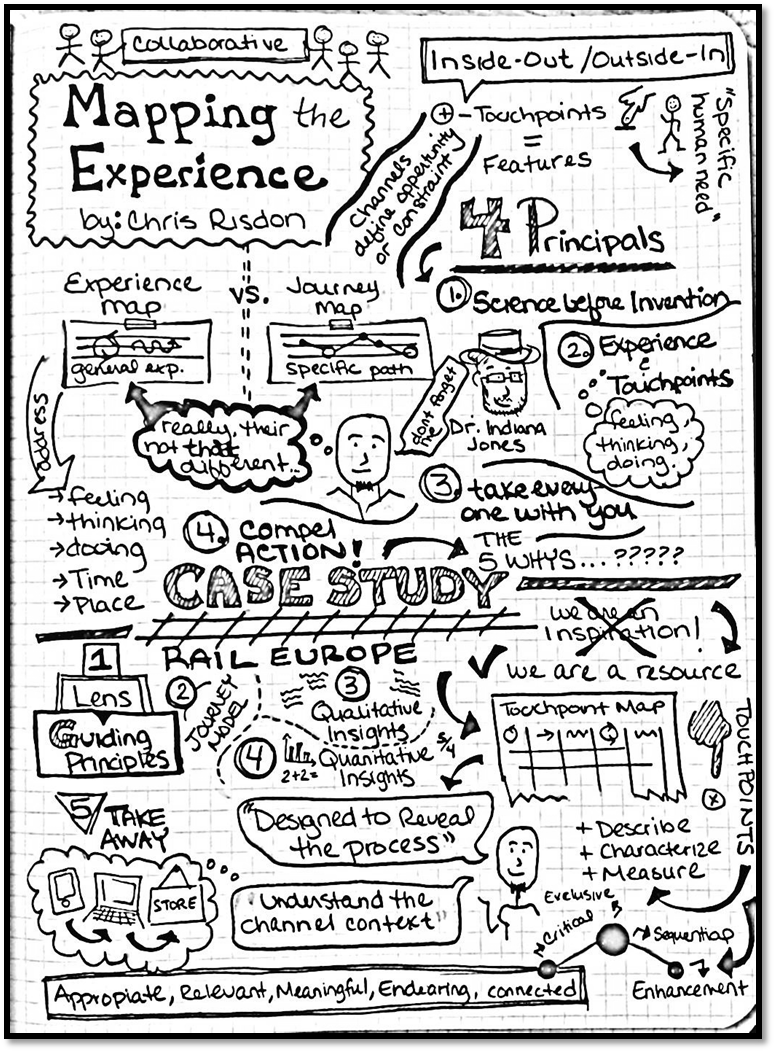 Collaborative
Mapping the
Experience
by: Chris Risdon
Inside-Out / Outside-In
+ - Touchpoints
=
Features
"Specific
human need"
Channels
define opportunity
or constraint
4 Principals
1. Science before Invention
2. Experience
&
Touchpoints
feeling,
thinking,
doing.
dont forget
the
Dr. Indiana
Jones
3. take every
one with you
4. Compel
ACTION!
THE
5 WHYS...?????
Experience
map
vs.
Journey
map
general exp.
specific path
really, their
not that
different...
address
→ feeling
→ thinking
→ dooing
→ Time
→ Place
CASE STUDY
RAIL EUROPE
we are an
Inspiration!
we are a resource
1
Lens
Guiding
Principles
2
JOURNEY
MODEL
3
Qualitative
Insights
4
2+2=
Quanitative
Insights
5/4
Touchpoint Map
TOUCHPOINTS
5 TAKE
AWAY
STORE
"Designed to Reveal
the process"
"Understand the
channel context"
+ Describe
+ Characterize
+ Measure
Exclusive
Critical
Sequential
Enhancement
Appropiate, Relevant, Meaningful, Endearing, connected